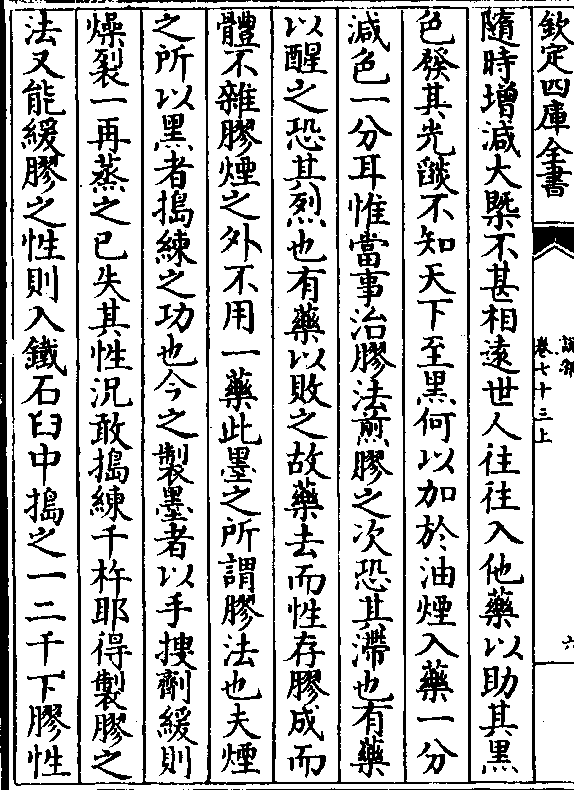 欽定四庫全書
說郛
卷七十三上
六
隨時增減大槩不甚相遠世人往往入他藥以助其黑
色發其光燄不知天下至黑何以加於油煙入藥一分
減色一分耳惟當事治膠法煎膠之次恐其滯也有藥
以醒之恐其烈也有藥以敗之故藥去而性存膠成而
體不雜膠煙之外不用一藥此墨之所謂膠法也夫煙
之所以黑者搗練之功也今之製墨者以手搜劑緩則
燥裂一再蒸之已失其性況敢搗練千杵耶得製膠之
法又能緩膠之性則入鐵石臼中搗之一二千下膠性